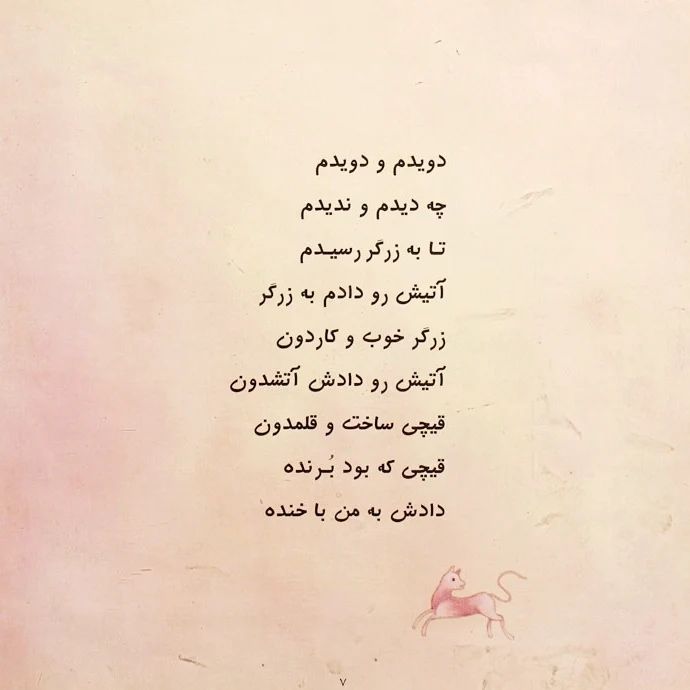 دویدم و دویدم
چه دیدم و ندیدم
تا به زرگر رسیدم
آتیش رو دادم به زرگر
زرگر خوب و کاردون
آتیش رو دادش آتشدون
قیچی ساخت و قلمدون
قیچی که بود بُرنده
دادش به من با خنده
۷